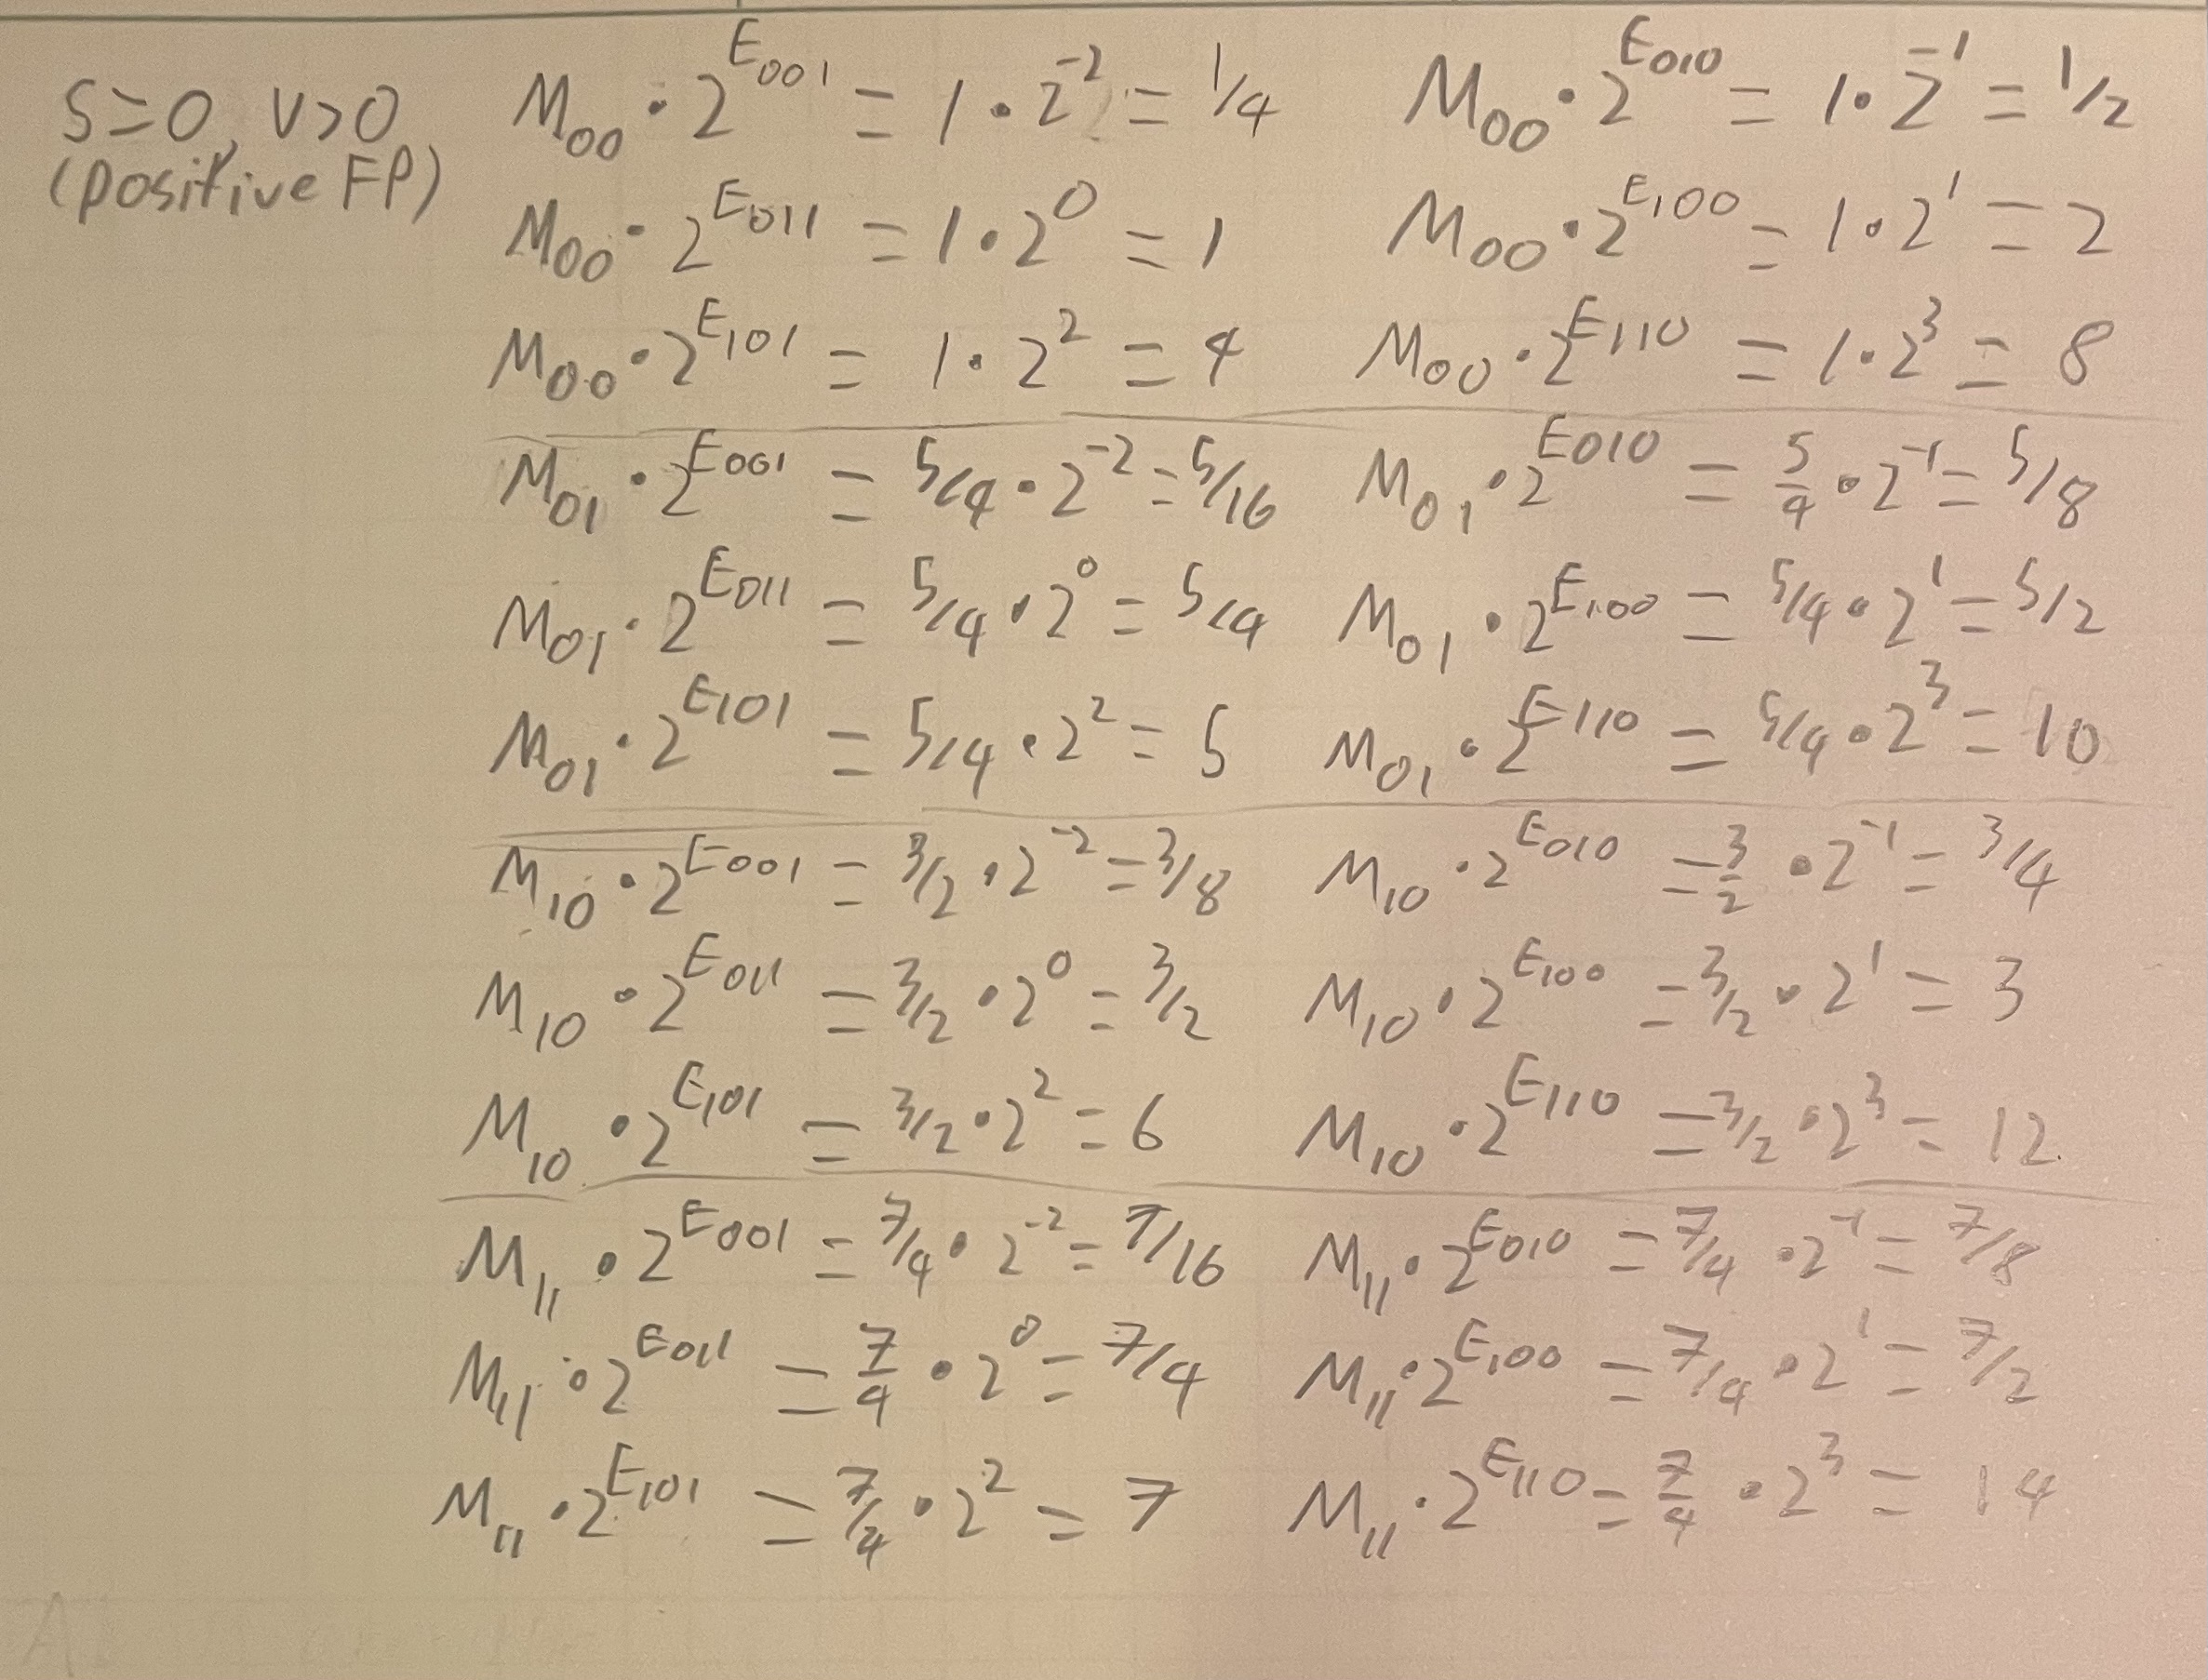 S=0, V>0
(positive FP)
M₀₀ · 2^E₀₀₁ = 1 · 2⁻² = 1/4 M₀₀ · 2^E₀₁₀ = 1 · 2⁻¹ = 1/2
M₀₀ · 2^E₀₁₁ = 1 · 2⁰ = 1 M₀₀ · 2^E₁₀₀ = 1 · 2¹ = 2
M₀₀ · 2^E₁₀₁ = 1 · 2² = 4 M₀₀ · 2^E₁₁₀ = 1 · 2³ = 8
M₀₁ · 2^E₀₀₁ = 5/4 · 2⁻² = 5/16 M₀₁ · 2^E₀₁₀ = 5/4 · 2⁻¹ = 5/8
M₀₁ · 2^E₀₁₁ = 5/4 · 2⁰ = 5/4 M₀₁ · 2^E₁₀₀ = 5/4 · 2¹ = 5/2
M₀₁ · 2^E₁₀₁ = 5/4 · 2² = 5 M₀₁ · 2^E₁₁₀ = 5/4 · 2³ = 10
M₁₀ · 2^E₀₀₁ = 3/2 · 2⁻² = 3/8 M₁₀ · 2^E₀₁₀ = 3/2 · 2⁻¹ = 3/4
M₁₀ · 2^E₀₁₁ = 3/2 · 2⁰ = 3/2 M₁₀ · 2^E₁₀₀ = 3/2 · 2¹ = 3
M₁₀ · 2^E₁₀₁ = 3/2 · 2² = 6 M₁₀ · 2^E₁₁₀ = 3/2 · 2³ = 12
M₁₁ · 2^E₀₀₁ = 7/4 · 2⁻² = 7/16 M₁₁ · 2^E₀₁₀ = 7/4 · 2⁻¹ = 7/8
M₁₁ · 2^E₀₁₁ = 7/4 · 2⁰ = 7/4 M₁₁ · 2^E₁₀₀ = 7/4 · 2¹ = 7/2
M₁₁ · 2^E₁₀₁ = 7/4 · 2² = 7 M₁₁ · 2^E₁₁₀ = 7/4 · 2³ = 14